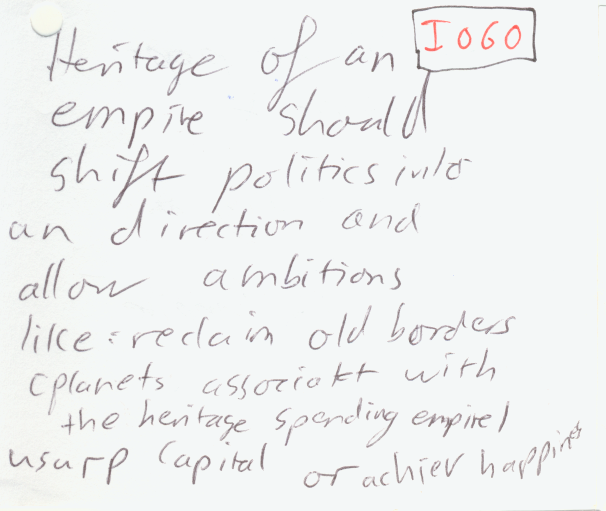 Heritage of an
I060
empire should
shift politics into
an direction and
allow ambitions
like: reclaim old borders
(planets associatet with
the heritage spending empire)
usurp Capital or achiev happines